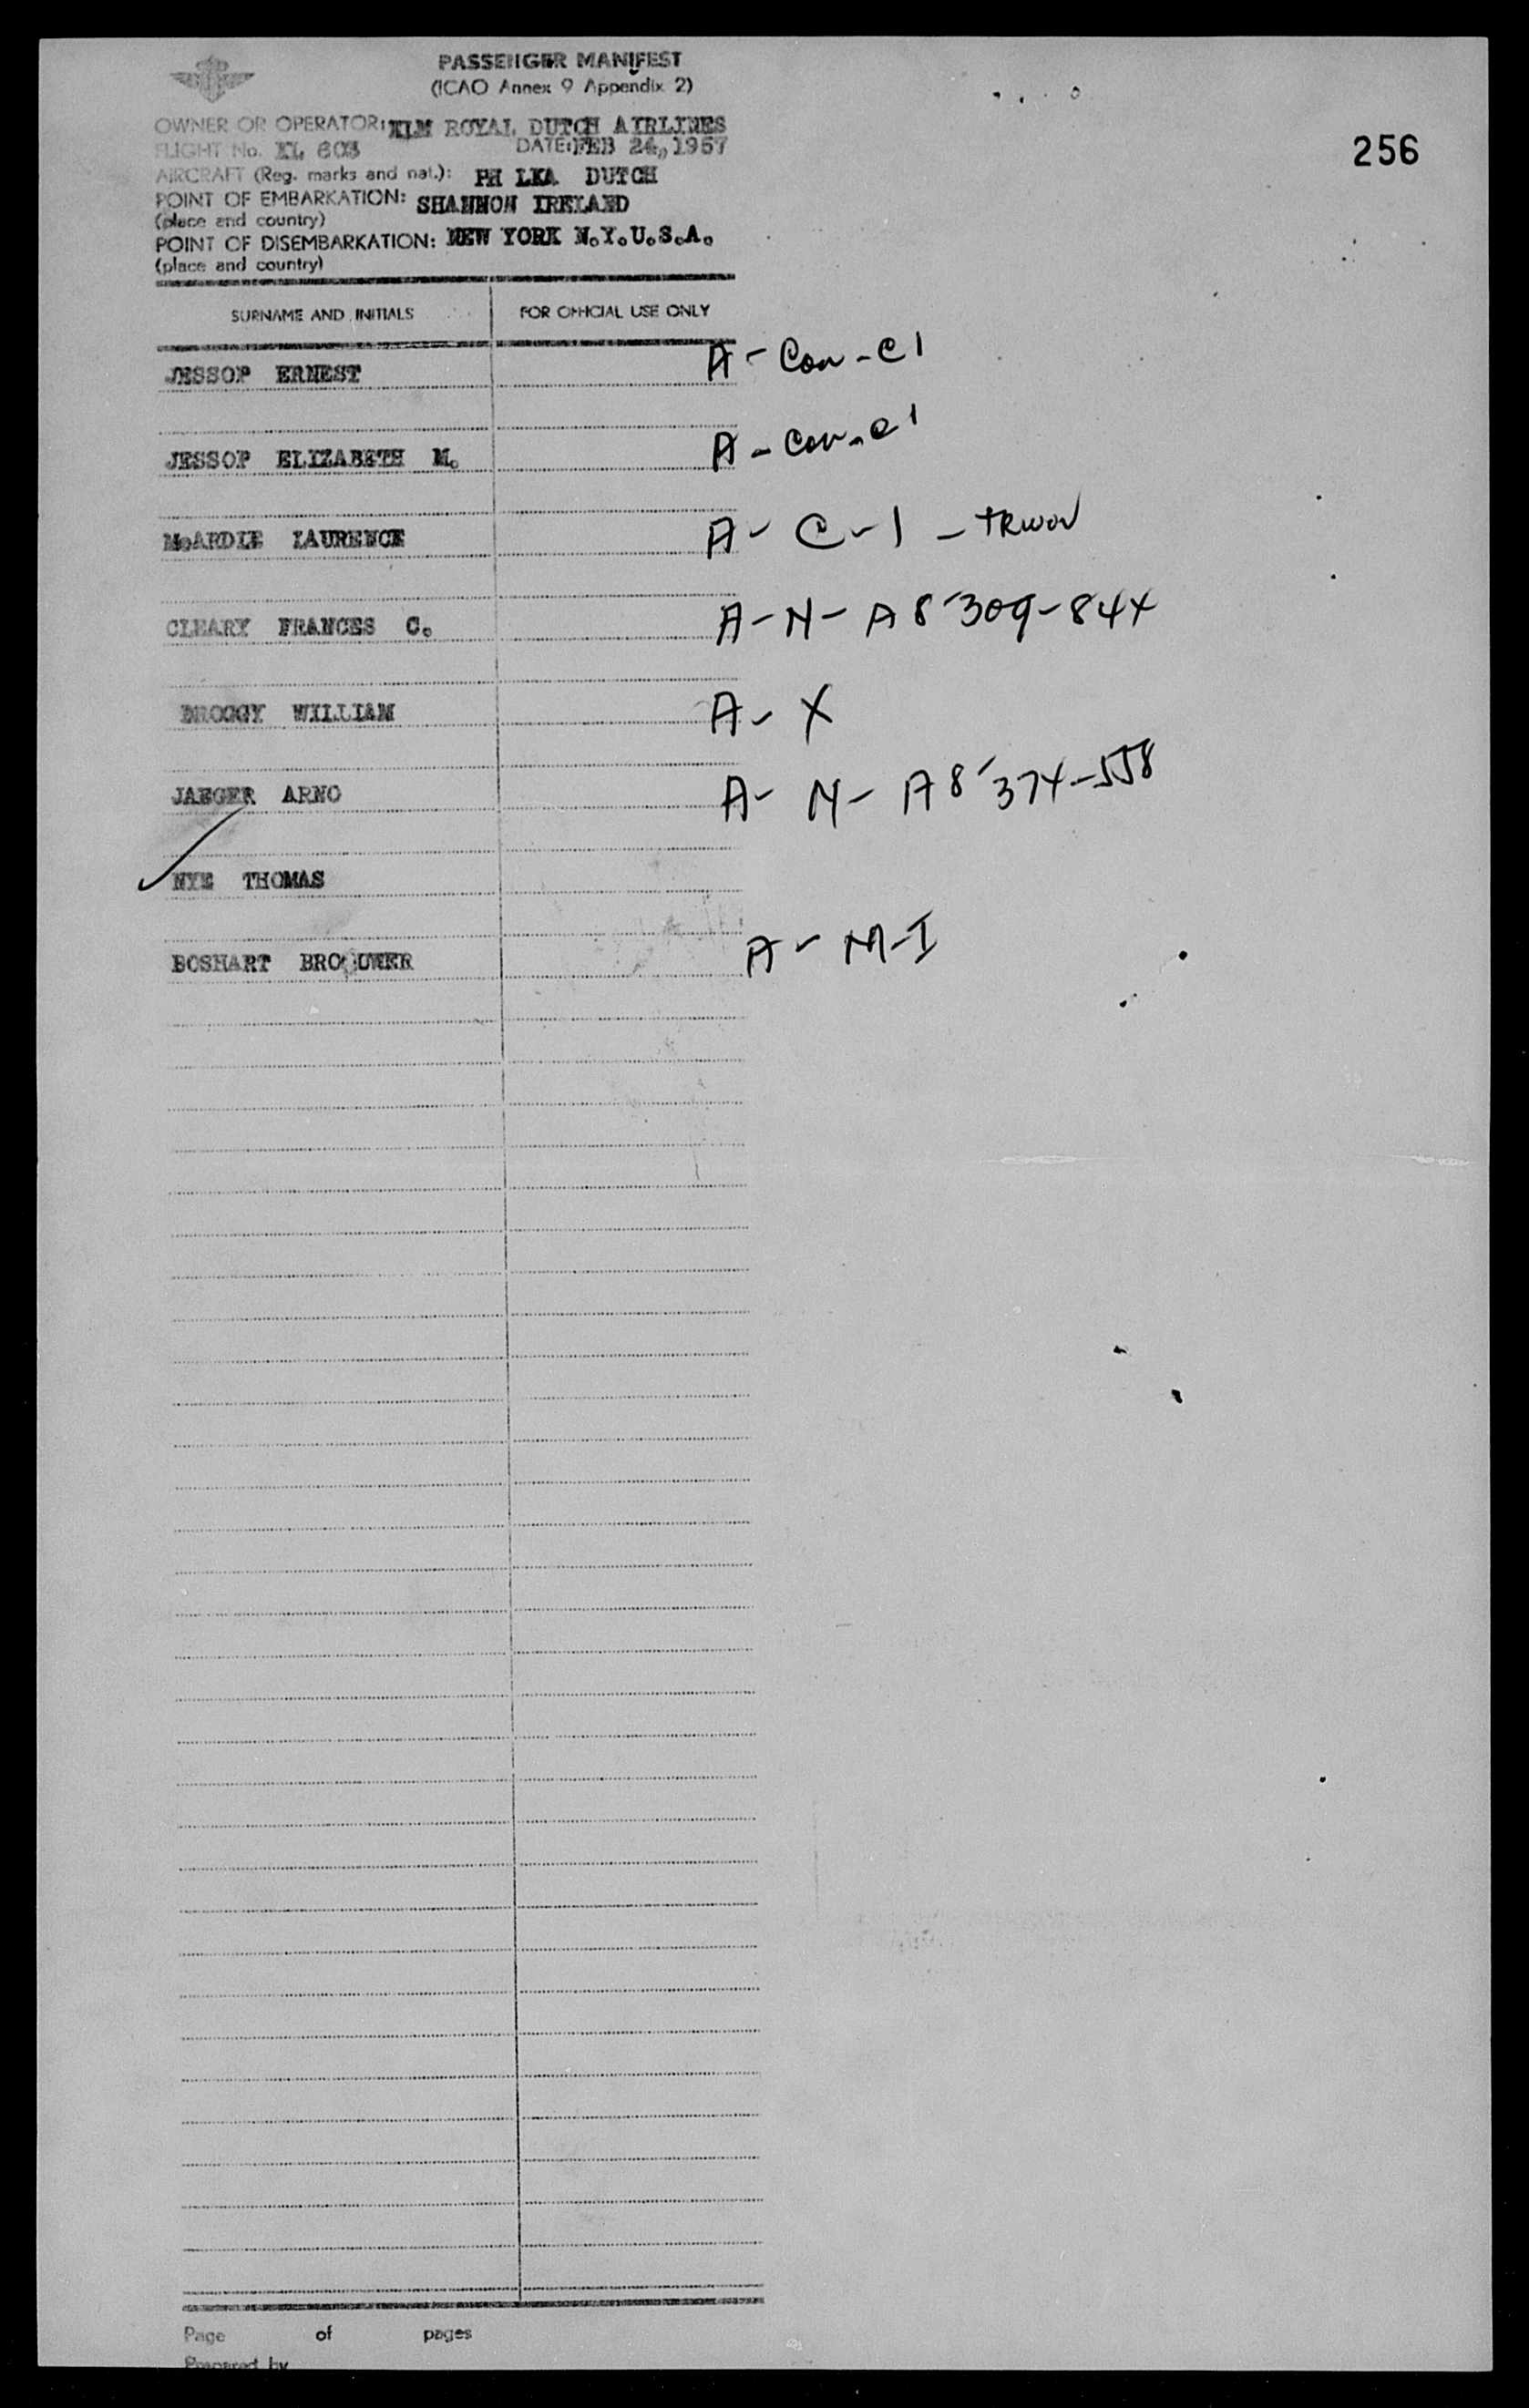 PASSENGER MANIFEST
(ICAO Annex 9 Appendix 2)
256
OWNER OR OPERATOR: KLM ROYAL DUTCH AIRLINES
FLIGHT No. KL 603 DATE: FEB 24, 1957
AIRCRAFT (Reg. marks and nat.): PH LKA DUTCH
POINT OF EMBARKATION: SHANNON IRELAND
(place and country)
POINT OF DISEMBARKATION: NEW YORK N.Y.U.S.A.
(place and country)
SURNAME AND INITIALS FOR OFFICIAL USE ONLY
JESSOP ERNEST A - Con - C1
JESSOP ELIZABETH M. A - Con - C1
McARDLE LAURENCE A - C - 1 -
CLEARY FRANCES C. A - N - A8 309-84X
BROGGY WILLIAM A - X
JAEGER ARNO A - N - A8 374-558
NYE THOMAS
BOSHART BROUWER A - M - I
Page of pages
Prepared by